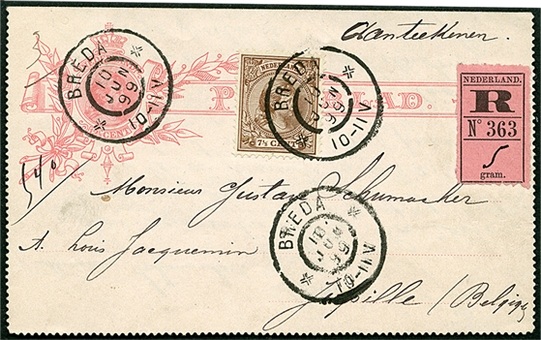 Aanteekenen.
BREDA
10 JUN 99
10-11V
BREDA
10 JUN 99
10-11V
NEDERLAND
7½ CENT
NEDERLAND.
R
N° 363
5
gram.
CENT
Monsieur Gustav Schumacher
A. Louis Jacquemin
BREDA
10 JUN 99
10-11V
Jupille (Belgique